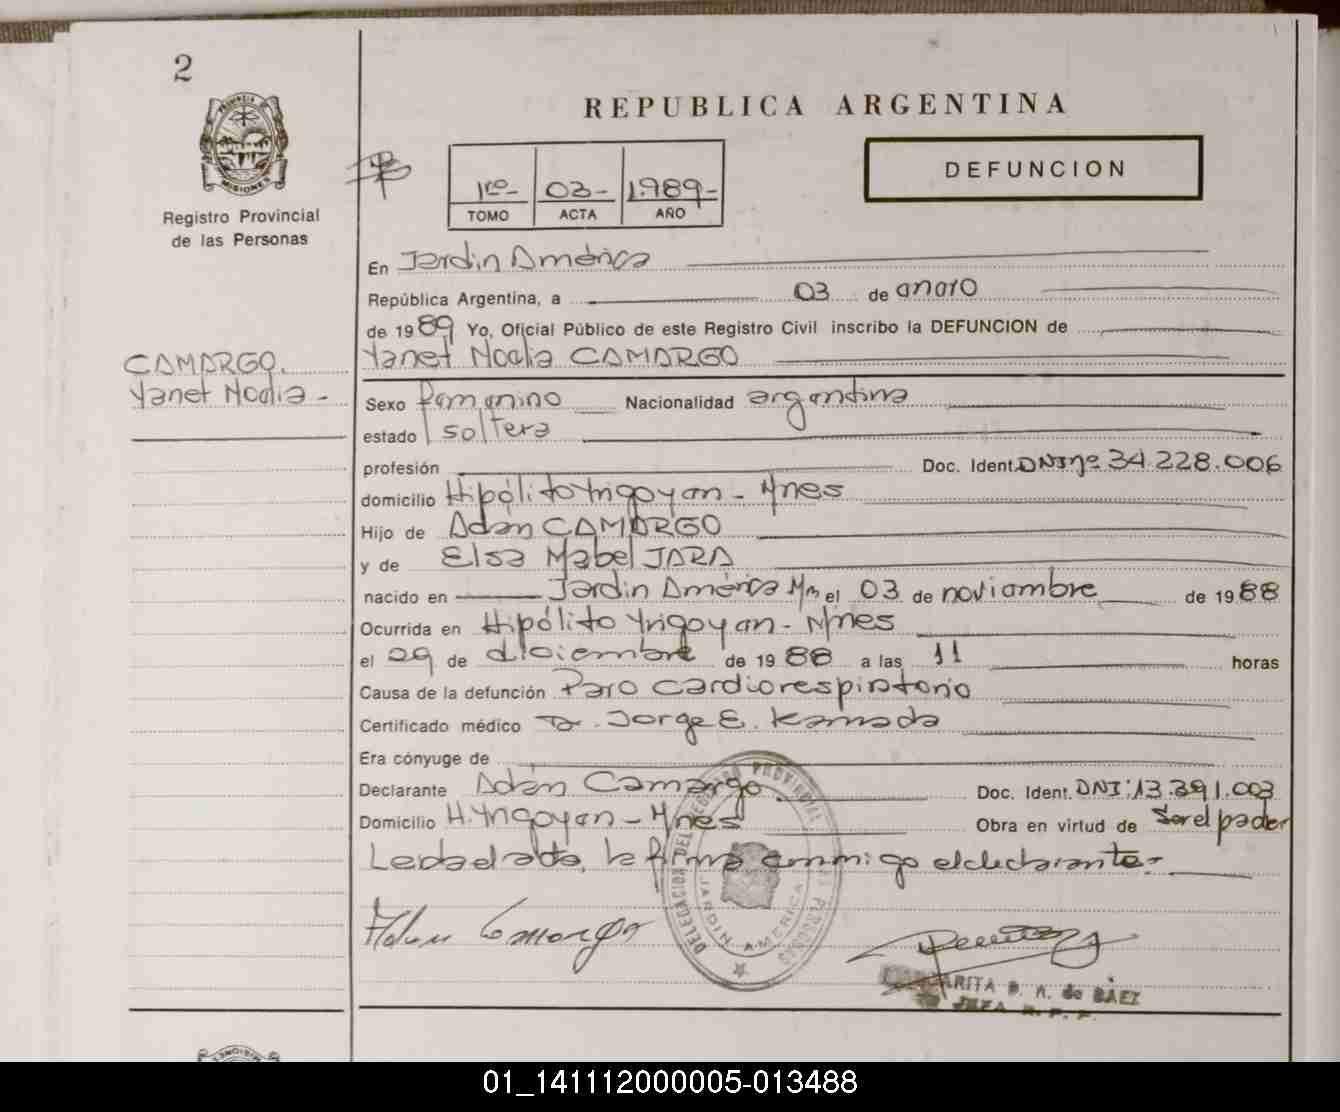 2
PROVINCIA DE
MISIONES
Registro Provincial
de las Personas
REPUBLICA ARGENTINA
1ro- 03- 1.989-
TOMO ACTA AÑO
DEFUNCION
En Jardin América
República Argentina, a 03 de enero
de 1989 Yo, Oficial Público de este Registro Civil inscribo la DEFUNCION de
Yanet Noelia CAMARGO
CAMARGO.
Yanet Noelia -
Sexo Femenino Nacionalidad argentina
estado soltera
profesión Doc. Ident. DNI nº 34.228.006
domicilio Hipólito Yrigoyen - Mnes
Hijo de Adán CAMARGO
y de Elsa Mabel JARA
nacido en Jardin América Mn el 03 de noviembre de 1988
Ocurrida en Hipólito Yrigoyen - Mnes
el 29 de diciembre de 1988 a las 11 horas
Causa de la defunción Paro cardiorespiratorio
Certificado médico Dr. Jorge E. Kamada
Era cónyuge de
Declarante Adán Camargo Doc. Ident. DNI: 13.391.003
Domicilio H. Yrigoyen - Mnes Obra en virtud de Ser el padre
Leida el acta, la firma conmigo el declarante.-
DELEGACION DEL REGISTRO PROVINCIAL DE LAS PERSONAS
JARDIN AMERICA
Adan Camargo
MARGARITA de BAEZ
JEFA R. P. P.
01_141112000005-013488